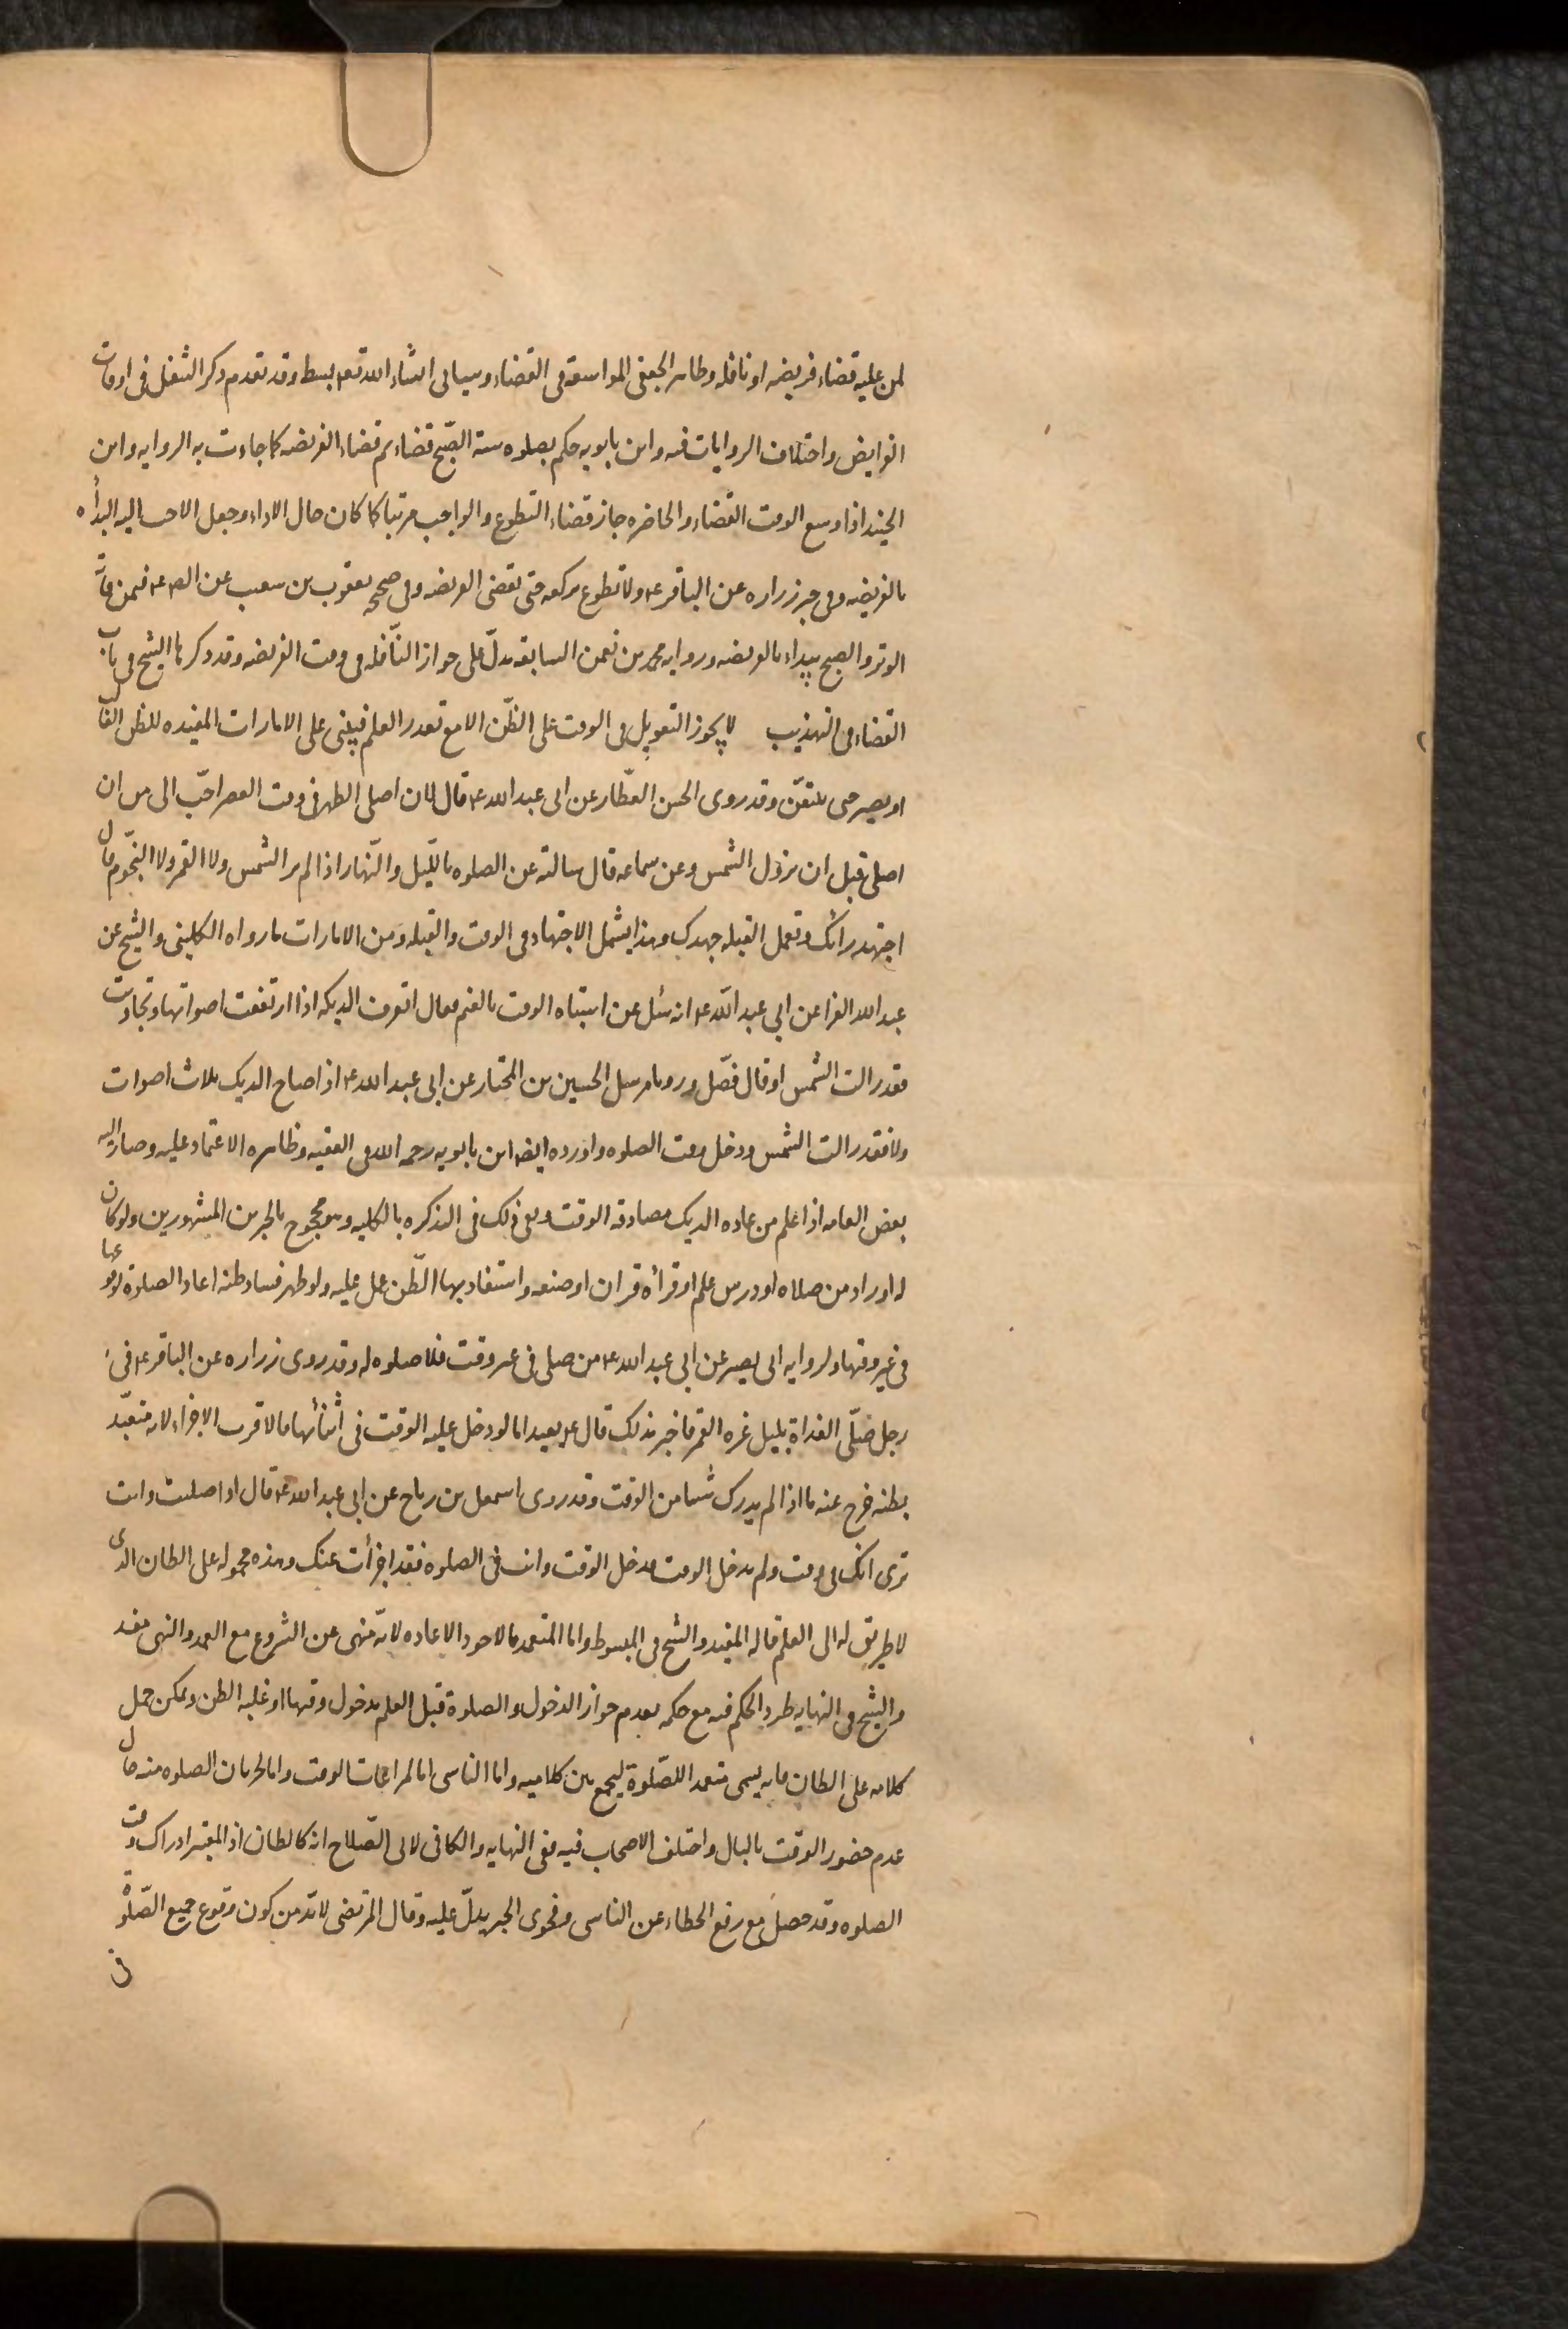 لمن عليه قضاء فريضه او نافله وظاهر الجعفى المواسعة فى القضاء وسياتى انشاء الله تعه بسط وقد تقدم ذكر التنفل فى اوقات
الفرايض واختلاف الروايات فيه وابن بابويه حكم بصلوه سنة الصّبح قضاء ثم قضاء الفريضه كما جاءت به الروايه وابن
الجنيد اذا وسع الوقت القضاء والحاضره جاز قضاء التطوع والواجب مرتبا كما كان حال الاداء وجعل الاحب اليه البدأه
بالفريضه وفى خبر زراره عن الباقر ع ولا تطوع بركعه حتى تقضى الفريضه وفى صحيحه يعقوب بن شعيب عن الص ع فيمن فاته
الوتر والصبح يبداء بالفريضه وروايه محمد بن نعمن السابقه تدلّ على جواز النّافله فى وقت الفريضه وقد ذكرها الشيخ فى باب
القضاء فى التهذيب لا يجوز التعويل فى الوقت على الظّن الا مع تعذر العلم فيبنى على الامارات المفيده للظن الغالب
او يصبر حتى يتيقّن وقد روى الحسن العطّار عن ابى عبد الله ع قال لان اصلى الظهر فى وقت العصر احبّ الى من ان
اصلى قبل ان تزول الشمس وعن سماعه قال سالته عن الصلوه باللّيل والنّهار اذا لم ير الشمس ولا القمر ولا النجّوم قال
اجتهد رائك وتعمل القبله جهدك وهذا يشمل الاجتهاد فى الوقت والقبله ومن الامارات ما رواه الكلينى والشيخ عن
عبد الله الفرا عن ابى عبد الله ع انه سئل عن اشتباه الوقت بالغيم فقال اتعرف الديكه اذا ارتفعت اصواتها وتجاوبت
فقد زالت الشمس او قال فصّل ورويا مرسل الحسين بن المختار عن ابى عبد الله ع اذا صاح الديك ثلاث اصوات
ولا فقد زالت الشمس ودخل وقت الصلوه واورده ايضا ابن بابويه رحمه الله فى الفقيه وظاهره الاعتماد عليه وصار اليه
بعض العامه اذا علم من عاده الديك مصادفه الوقت ونفى ذلك فى التذكره بالكليه وهو محجوج بالخبرين المشهورين ولو كان
له اوراد من صلاه او درس علم او قرأه قران او صنعه واستفاد بها الظّن عمل عليه ولو ظهر فساد ظنه اعاد الصلوة لوقوعها
فى غير وقتها ولروايه ابى بصير عن ابى عبد الله ع من صلى فى غير وقت فلا صلوه له وقد روى زراره عن الباقر ع فى
رجل صلّى الغداة بليل غره القمر فاخبر بذلك قال ع يعيد اما لو دخل عليه الوقت فى اثنائها فالاقرب الاجزاء لانه متعبّد
بظنه خرج عنه ما اذا لم يدرك شيئا من الوقت وقد روى اسمعيل بن رباح عن ابى عبد الله ع قال اذا صليت وانت
ترى انك فى وقت ولم يدخل الوقت فدخل الوقت وانت فى الصلوه فقد اجزأت عنك وهذه محموله على الظان الذى
لا طريق له الى العلم قاله المفيد والشيخ فى المبسوط واما المتعمد فالاجود الاعاده لانّه منهى عن الشروع مع العمد والنهى مفسد
والشيخ فى النهايه طرد الحكم فيه مع حكمه بعدم جواز الدخول فى الصلوة قبل العلم بدخول وقتها او غلبه الظن ويمكن حمل
كلامه على الظان فانه يسمى متعمد اللصّلوة ليجمع بين كلاميه واما الناسى اما لمراعات الوقت واما لجريان الصلوه منه حال
عدم حضور الوقت بالبال واختلف الاصحاب فيه ففى النهايه والكافى لابى الصّلاح انه كالظان اذ المعتبر ادراك وقت
الصلوه وقد حصل مع رفع الخطاء عن الناسى وفحوى الخبر يدلّ عليه وقال المرتضى لابدّ من كون وقوع جميع الصّلوة
فى